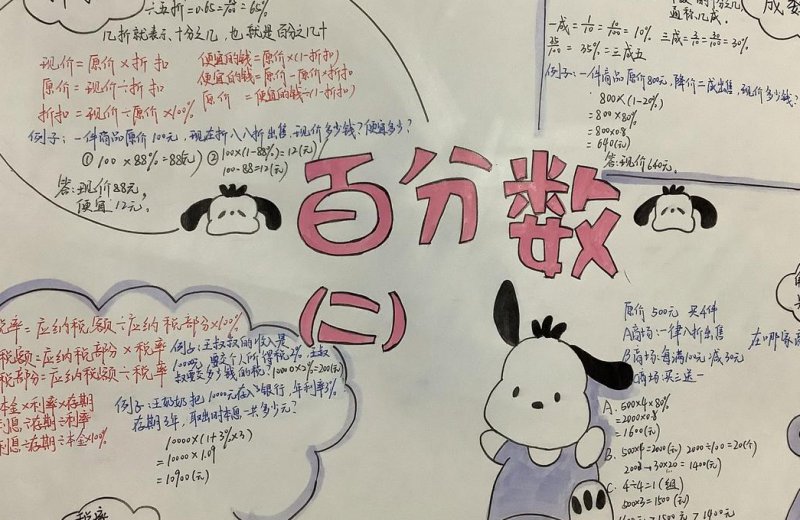 六五折=0.65=65/100=65%
几折就表示十分之几,也就是百分之几十
现价=原价×折扣
原价=现价÷折扣
折扣=现价÷原价×100%
便宜的钱=原价×(1-折扣)
便宜的钱=原价-原价×折扣
原价=便宜的钱÷(1-折扣)
例子:一件商品原价100元,现在折八八折出售,现价多少钱?便宜多少?
① 100×88%=88(元) ② 100×(1-88%)=12(元)
100-88=12(元)
答:现价88元,
便宜12元。
通称几成。
一成=1/10=10/100=10%
35/100=35%=三成五 三成=3/10=30/100=30%
例子:一件商品原价800元,降价二成出售,现价多少钱?
800×(1-20%)
=800×80%
=800×0.8
=640(元)
答:现价640元。
百分数
(二)
税率=应纳税额÷应纳税部分×100%
税额=应纳税部分×税率
税部分=应纳税额÷税率
本金×利率×存期
利息÷存期÷利率
利息÷存期÷本金×100%
例子:王叔叔的收入是
10000×2%=200(元)
例子:王奶奶把10000元存入银行,年利率3%
存期3年,取出时本息一共多少元?
10000×(1+3%×3)
=10000×1.09
=10900(元)
税率
原价500元 买4件
A商场:一律八折出售
B商场:每满100元减30元
C商场:买三送一
在哪家商
A. 500×4×80%
=2000×0.8
=1600(元)
B. 500×4=2000(元) 2000÷100=20(个)
2000-30×20=1400(元)
C. 4÷4=1(组)
500×3=1500(元)
1600元>1500元>1400元